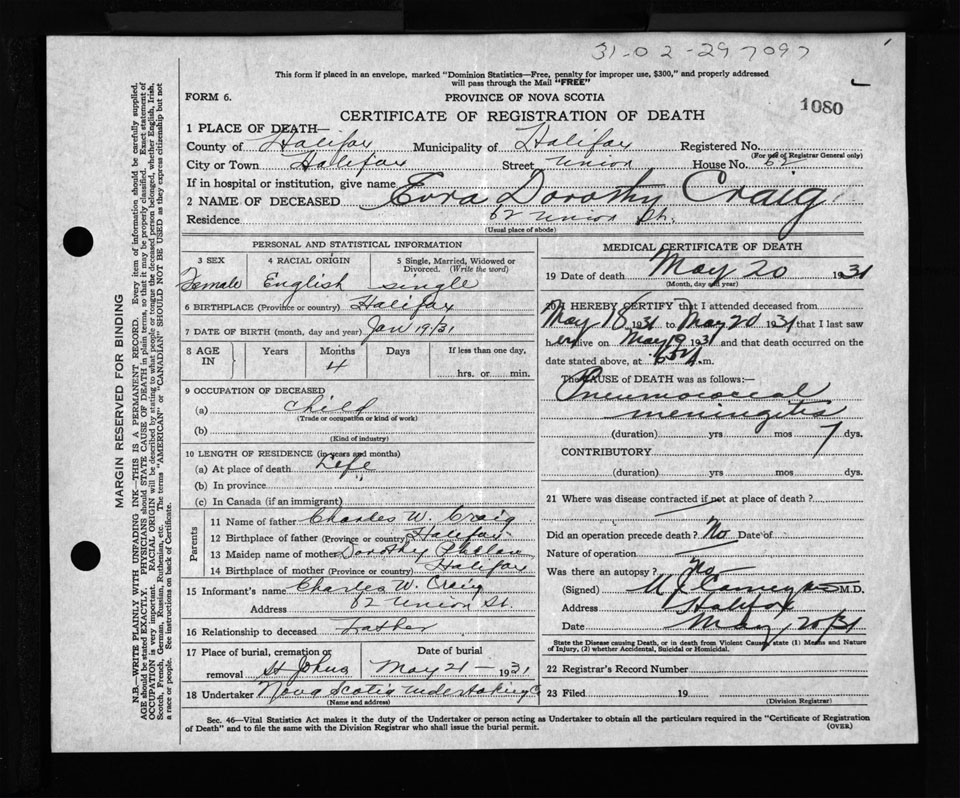 31-02-297097
This form if placed in an envelope, marked "Dominion Statistics—Free, penalty for improper use, $300," and properly addressed
will pass through the Mail "FREE"
FORM 6. PROVINCE OF NOVA SCOTIA 1080
CERTIFICATE OF REGISTRATION OF DEATH
1 PLACE OF DEATH—
County of Halifax Municipality of Halifax Registered No.
(For use of Registrar General only)
City or Town Halifax Street Union House No. 62
If in hospital or institution, give name
2 NAME OF DECEASED Dorothy Craig
Residence 62 Union St.
(Usual place of abode)
PERSONAL AND STATISTICAL INFORMATION
3 SEX 4 RACIAL ORIGIN 5 Single, Married, Widowed or
Divorced. (Write the word)
Female English Single
6 BIRTHPLACE (Province or country) Halifax
7 DATE OF BIRTH (month, day and year) Jan 19/31
8 AGE IN Years Months Days If less than one day,
4 hrs. or min.
9 OCCUPATION OF DECEASED
(a) Child
(Trade or occupation or kind of work)
(b)
(Kind of industry)
10 LENGTH OF RESIDENCE (in years and months)
(a) At place of death Life
(b) In province "
(c) In Canada (if an immigrant)
Parents
11 Name of father Charles W. Craig
12 Birthplace of father (Province or country) Halifax
13 Maiden name of mother Dorothy
14 Birthplace of mother (Province or country) Halifax
15 Informant's name Charles W. Craig
Address 62 Union St.
16 Relationship to deceased Father
17 Place of burial, cremation or
removal St Johns
Date of burial
May 21 - 1931
18 Undertaker Nova Scotia Undertaking Co
(Name and address)
MEDICAL CERTIFICATE OF DEATH
19 Date of death May 20 1931
(Month, day and year)
20 I HEREBY CERTIFY that I attended deceased from
May 18 1931 to May 20 1931 that I last saw
her alive on May 19 1931 and that death occurred on the
date stated above, at m.
The CAUSE of DEATH was as follows:—
Pneumococcal
meningitis
(duration) yrs mos 7 dys.
CONTRIBUTORY
(duration) yrs. mos dys.
21 Where was disease contracted if not at place of death?
Did an operation precede death? No Date of
Nature of operation
Was there an autopsy?
(Signed) M.D.
Address Halifax
Date May 20/31
State the Disease causing Death, or in death from Violent Causes state (1) Means and Nature
of Injury, (2) whether Accidental, Suicidal or Homicidal.
22 Registrar's Record Number
23 Filed 19
(Division Registrar)
Sec. 46—Vital Statistics Act makes it the duty of the Undertaker or person acting as Undertaker to obtain all the particulars required in the "Certificate of Registration
of Death" and to file the same with the Division Registrar who shall issue the burial permit. (OVER)
MARGIN RESERVED FOR BINDING
N.B.—WRITE PLAINLY WITH UNFADING INK—THIS IS A PERMANENT RECORD. Every item of information should be carefully supplied.
AGE should be stated EXACTLY. PHYSICIANS should STATE CAUSE OF DEATH in plain terms, so that it may be properly classified. Exact statement of
OCCUPATION is very important. RACIAL ORIGIN will be described by stating to what people or tongue the deceased person belonged, whether English, Irish,
Scotch, French, German, Russian, Ruthenian, etc. The terms "AMERICAN" or "CANADIAN" SHOULD NOT BE USED as they express citizenship but not
a race or people. See instructions on back of Certificate.